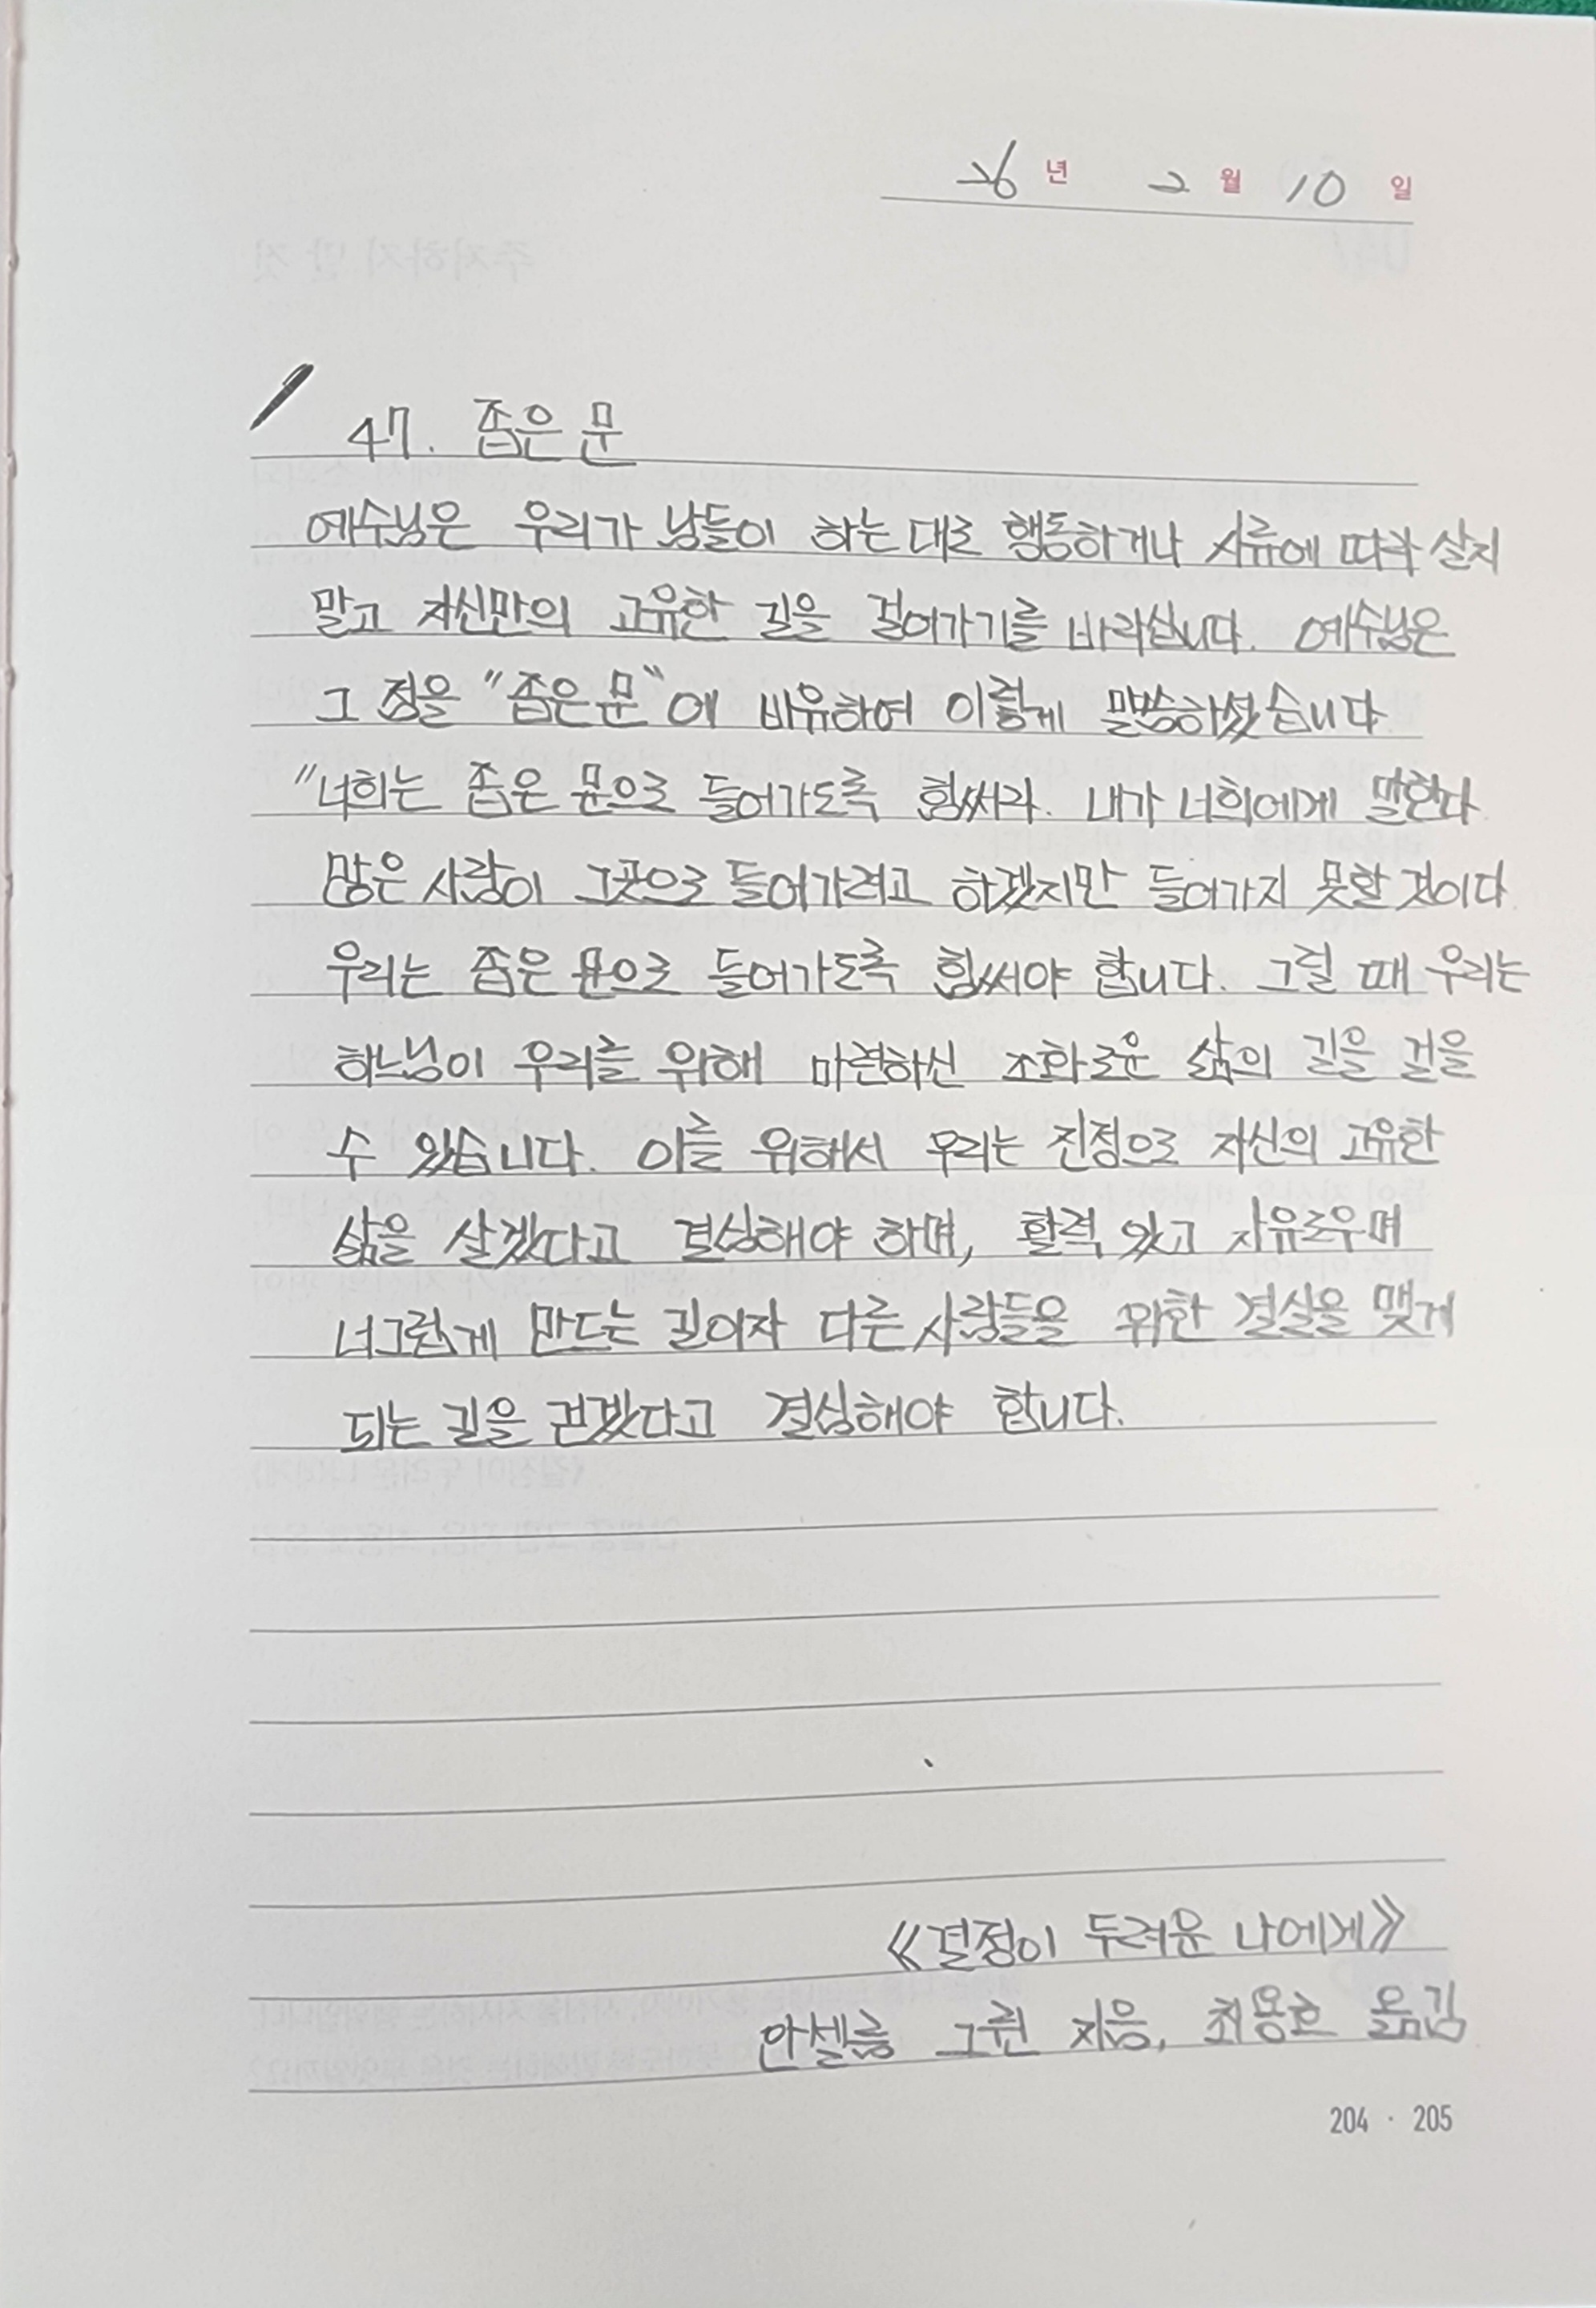 26년 2월 10일
47. 좁은 문
예수님은 우리가 남들이 하는 대로 행동하거나 사류에 따라 살지
말고 자신만의 고유한 길을 걸어가기를 바라십니다. 예수님은
그 점을 "좁은 문"에 비유하여 이렇게 말씀하셨습니다
"너희는 좁은 문으로 들어가도록 힘써라. 내가 너희에게 말한다
많은 사람이 그곳으로 들어가려고 하겠지만 들어가지 못할 것이다
우리는 좁은 문으로 들어가도록 힘써야 합니다. 그럴 때 우리는
하느님이 우리를 위해 마련하신 조화로운 삶의 길을 걸을
수 있습니다. 이를 위해서 우리는 진정으로 자신의 고유한
삶을 살겠다고 결심해야 하며, 활력 있고 자유로우며
너그럽게 만드는 길이자 다른 사람들을 위한 결실을 맺게
되는 길을 걷겠다고 결심해야 합니다.
《결정이 두려운 나에게》
안셀름 그륀 지음, 최용호 옮김
204 · 205